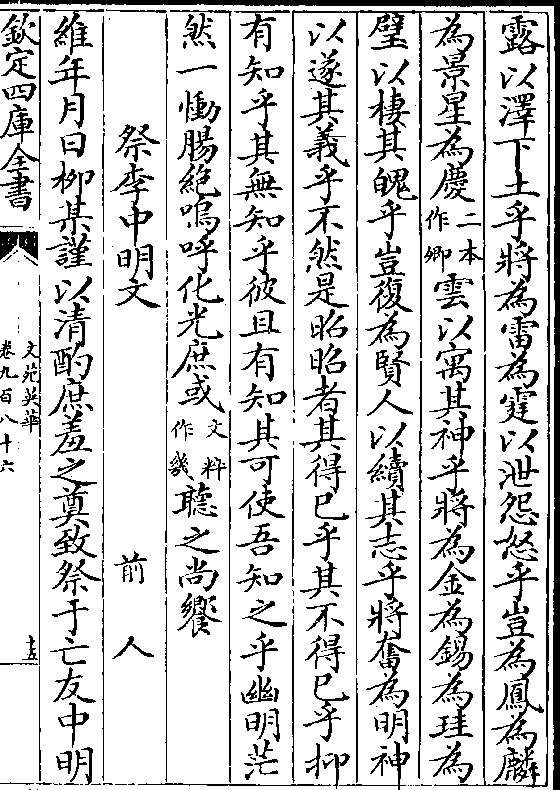 露以澤下土乎將為雷為霆以泄怨怒乎豈為鳳為麟
為景星為慶二本作卿雲以寓其神乎將為金為錫為珪為
璧以棲其魄乎豈復為賢人以續其志乎將奮為明神
以遂其義乎不然是昭昭者其得已乎其不得已乎抑
有知乎其無知乎彼且有知其可使吾知之乎幽明茫
然一慟腸絶嗚呼化光庶或文粹作幾聽之尚饗
祭李中明文 前人
維年月日柳某謹以清酌庶羞之奠致祭于亡友中明
欽定四庫全書
文苑英華
卷九百八十六
十五